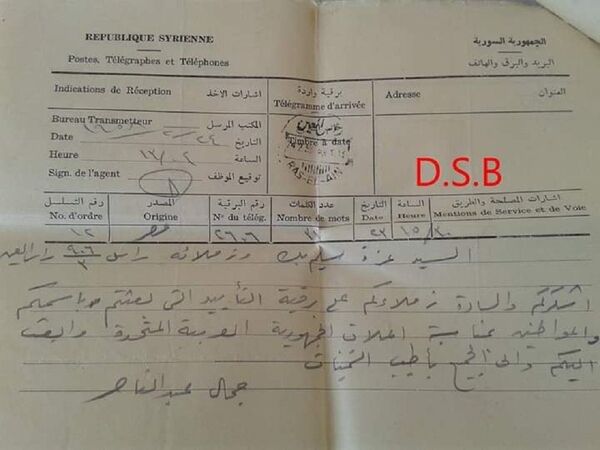 REPUBLIQUE SYRIENNE
الجمهورية السورية
Postes, Télégraphes et Téléphones
البريد والبرق والهاتف
Indications de Réception
اشارات الاخذ
برقية واردة
Télégramme d'arrivée
Adresse
العنوان
Bureau Transmetteur
المكتب المرسل
Date
التاريخ
Timbre à date
Heure
الساعة
١٣/٠٢
Sign. de l'agent
توقيع الموظف
RAS-EL-AIN
D.S.B
رقم التسلسل
المصدر
رقم البرقية
عدد الكلمات
التاريخ
الساعة
اشارات المصلحة والطريق
No. d'ordre
Origine
N° du télég.
Nombre de mots
Date
Heure
Mentions de Service et de Voie
١٢
مصر
٢٦٠٦
٣١
٢٣
١٥/٣٠
السيد عزة سليم بك وزملائه راس العين
اشكركم والسادة زملاءكم على برقية التأييد التي بعثتم وباسمكم
والمواطنين بمناسبة اعلان الجمهورية العربية المتحدة وابعث
اليكم والى الجميع بأطيب التمنيات
جمال عبد الناصر